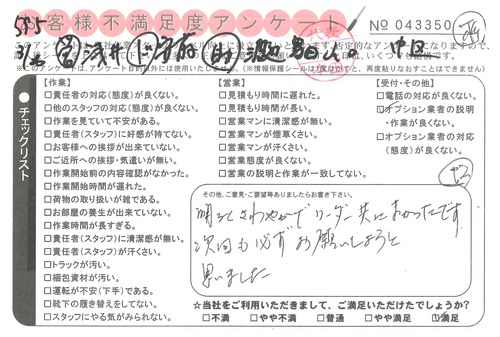 お客様不満足度アンケート
No 043350
チェックリスト
【作業】
□責任者の対応(態度)が良くない。
□他のスタッフの対応(態度)が良くない。
□作業を見ていて不安がある。
□責任者(スタッフ)に好感が持てない。
□お客様への挨拶が出来ていない。
□ご近所への挨拶・気遣いが無い。
□作業開始前の内容確認がなかった。
□作業開始時間が遅れた。
□荷物の取り扱いが雑である。
□お部屋の養生が出来ていない。
□作業時間が長すぎる。
□責任者(スタッフ)に清潔感が無い。
□責任者(スタッフ)が汗くさい。
□トラックが汚い。
□梱包資材が汚い。
□運転が不安(下手)である。
□靴下の履き替えをしてない。
□スタッフにやる気がみられない。
【営業】
□見積もり時間に遅れた。
□見積もり時間が長い。
□営業マンに清潔感が無い。
□営業マンが煙草くさい。
□営業マンが汗くさい。
□営業態度が良くない。
□営業の説明と作業が一致してない。
【受付・その他】
□電話の対応が良くない。
□オプション業者の説明
・作業が良くない。
□オプション業者の対応
(態度)が良くない。
その他、ご意見・ご要望等ありましたらお書き下さい。
明るくさわやかでリーダー共によかったです
次回も必ずお願いしようと
思いました
☆当社をご利用いただきまして、ご満足いただけたでしょうか?
□不満 □やや不満 □普通 □やや満足 □満足